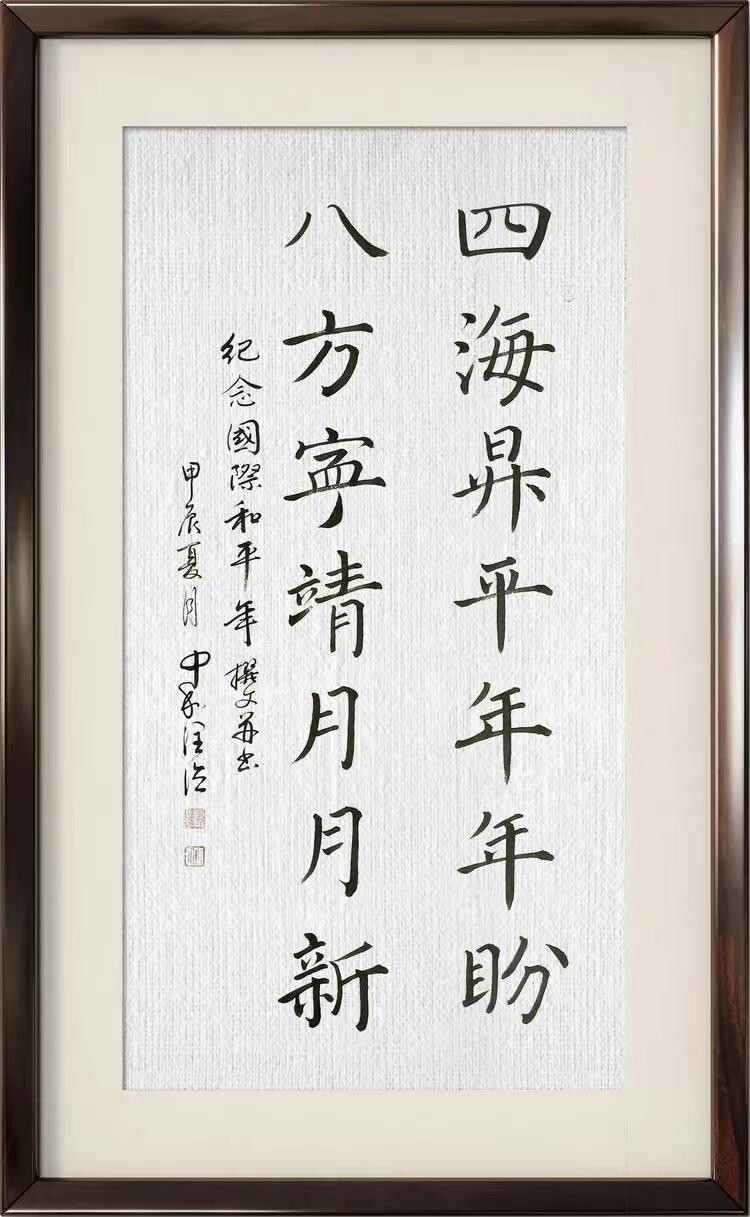 四海昇平年年盼
八方寧靖月月新
紀念國際和平年 撰文并書
甲辰夏月